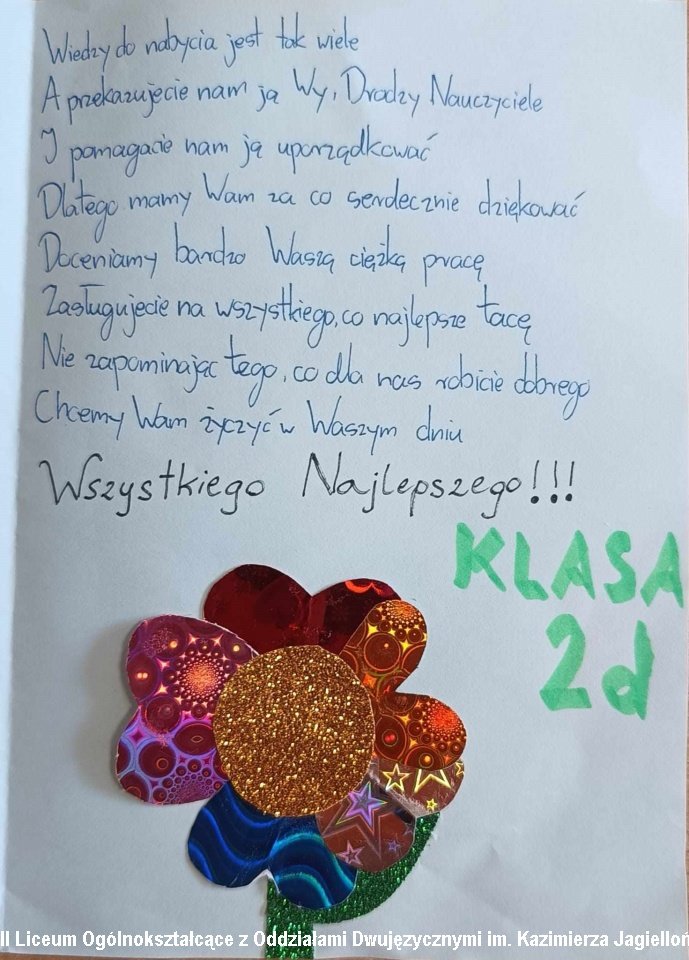 Wiedzy do nabycia jest tak wiele
A przekazujecie nam ją Wy, Drodzy Nauczyciele
I pomagacie nam ją uporządkować
Dlatego mamy Wam za co serdecznie dziękować
Doceniamy bardzo Waszą ciężką pracę
Zasługujecie na wszystkiego, co najlepsze tacę
Nie zapominając tego, co dla nas robicie dobrego
Chcemy Wam życzyć w Waszym dniu
Wszystkiego Najlepszego!!!
KLASA
2d
II Liceum Ogólnokształcące z Oddziałami Dwujęzycznymi im. Kazimierza Jagielloń